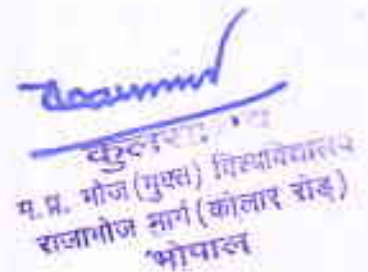 म.प्र. भोज (मुक्त) विश्वविद्यालय
राजाभोज मार्ग (कोलार रोड)
भोपाल